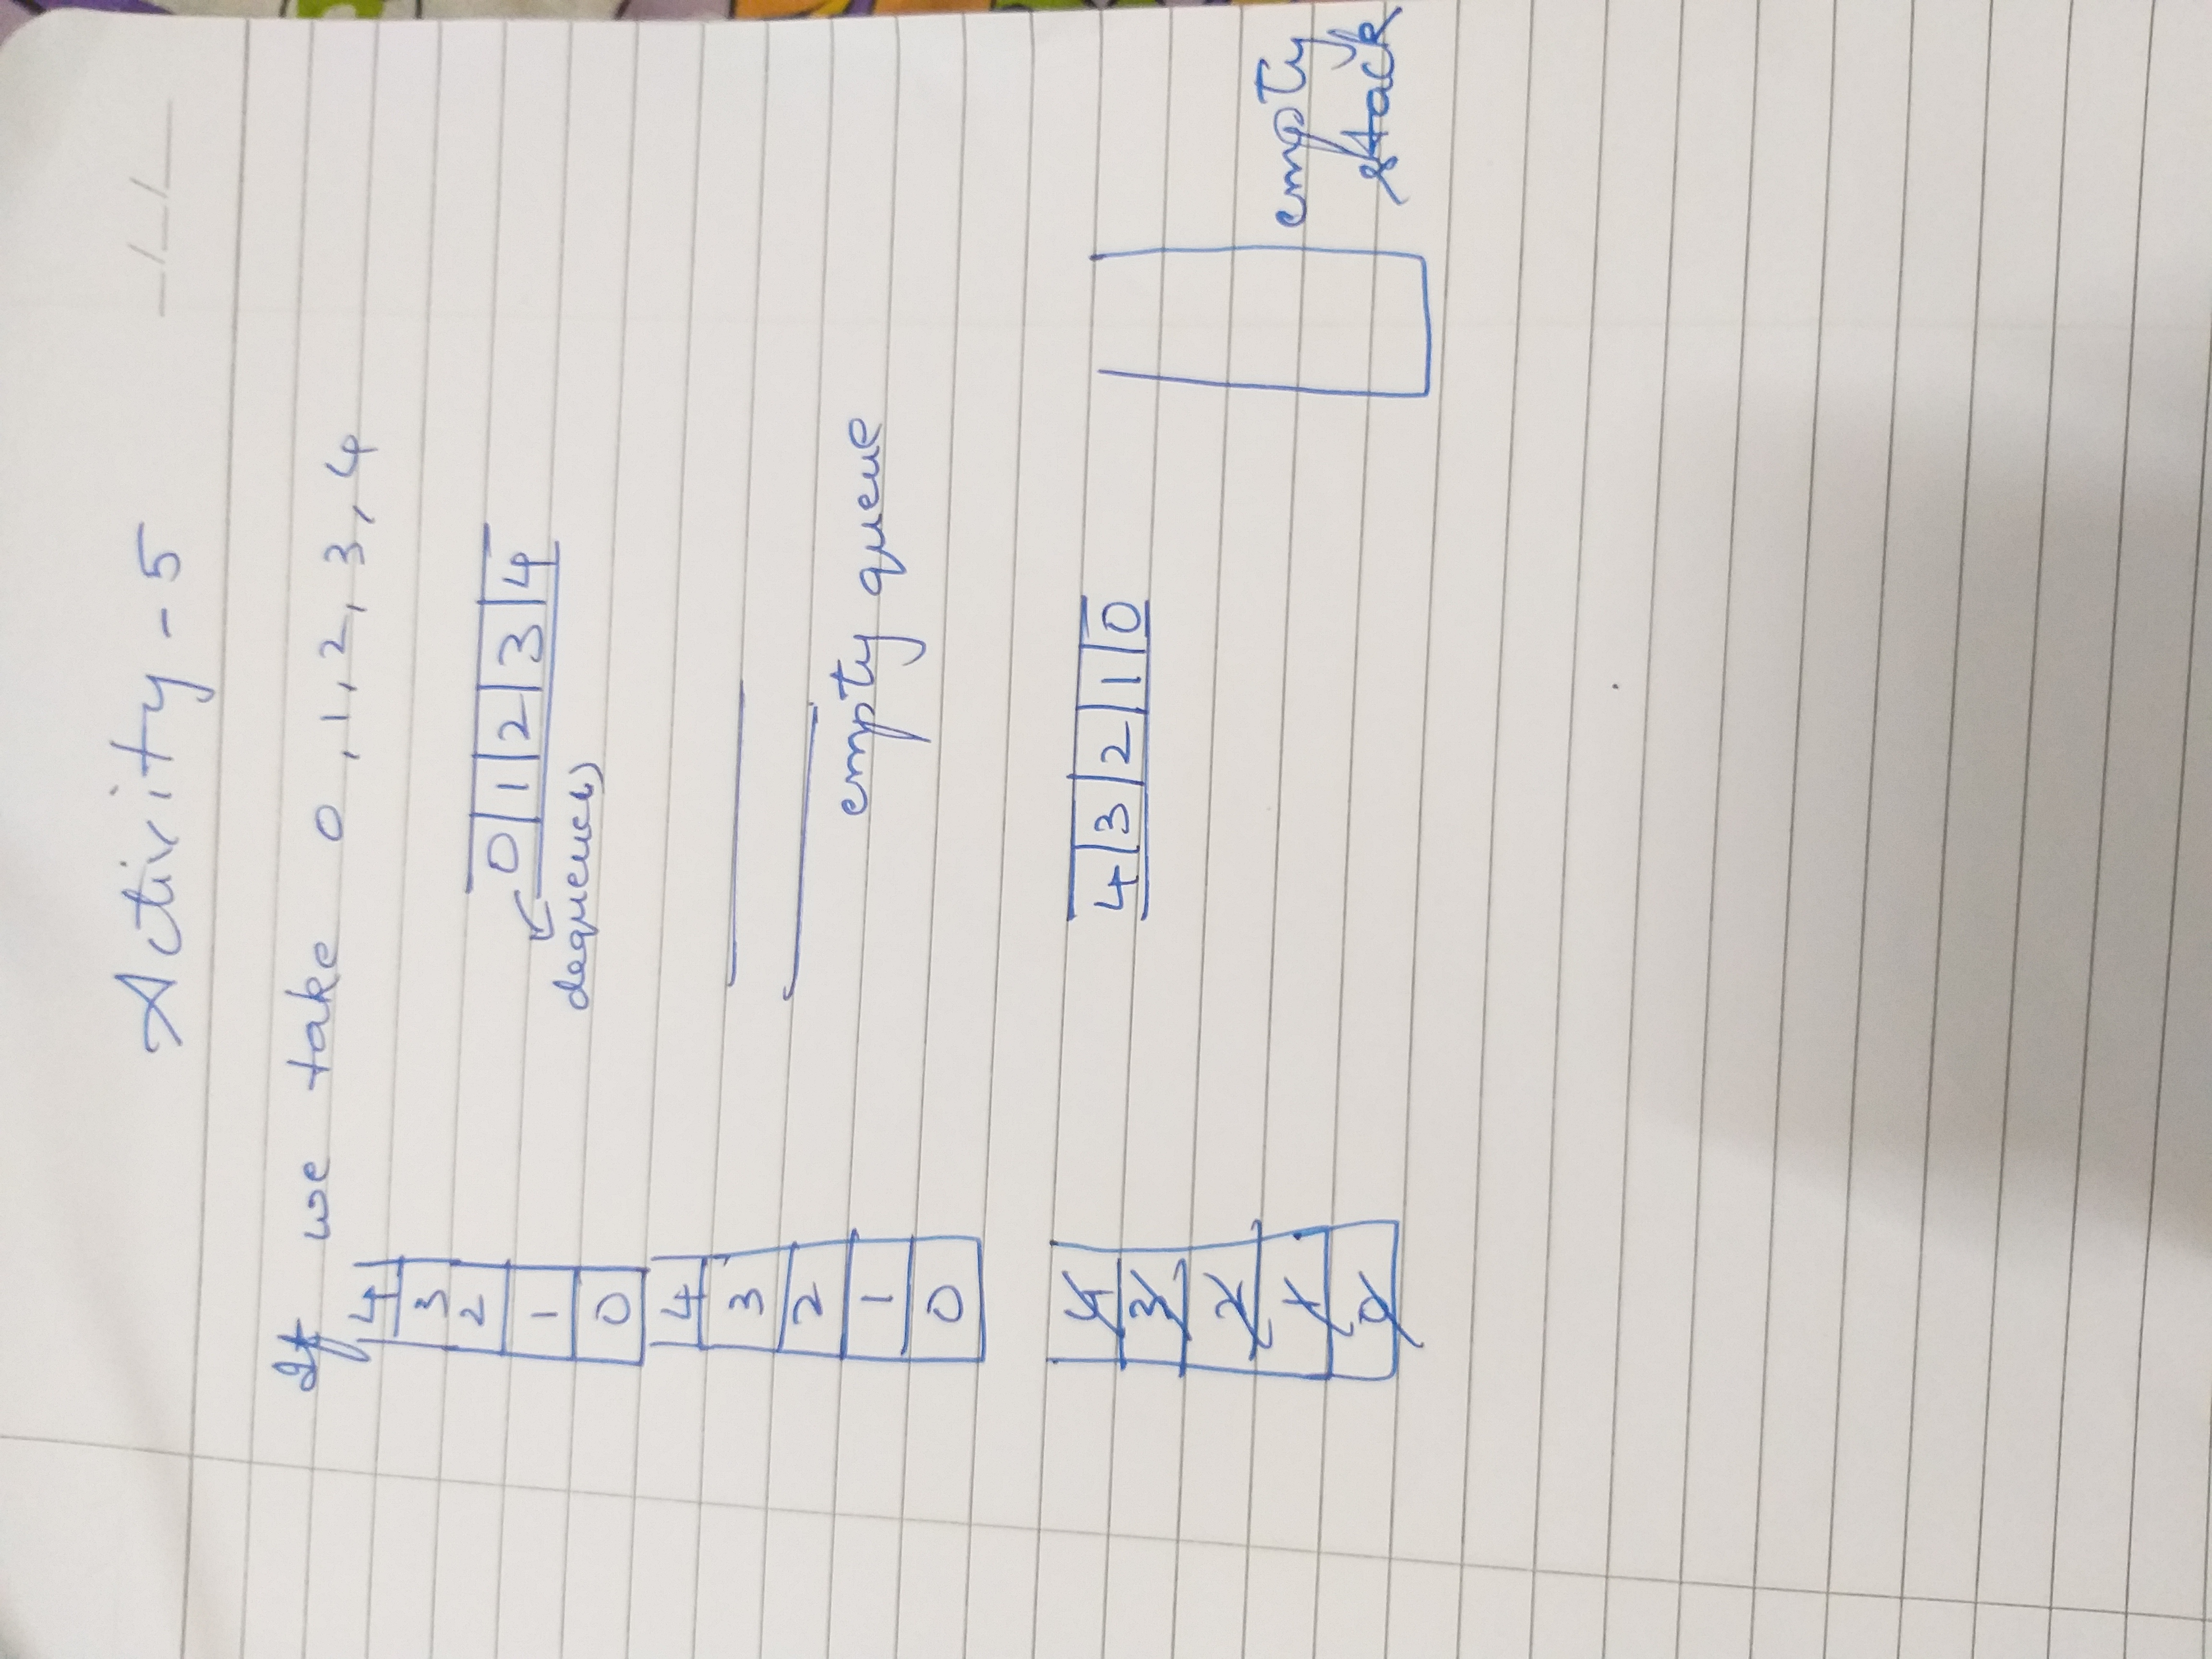 Activity - 5
_/_/__
If we take 0, 1, 2, 3, 4
4
3
2
0 1 2 3 4
1
dequeue()
0
4
3
2
empty queue
1
0
4
4 3 2 1 0
3
2
1
empty
0
stack